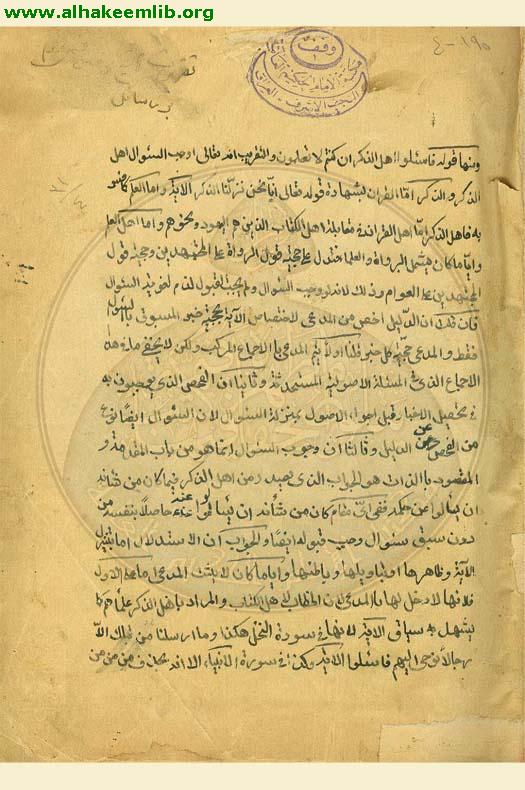 www.alhakeemlib.org
وقف
مكتبة الامام الحكيم العامة
النجف الاشرف - العراق
ومنها قوله فاسئلوا اهل الذكر ان كنتم لا تعلمون والتقريب انه تعالى اوجب السئوال اهل
الذكر والذكر امّا القران بشهادة قوله تعالى انّا نحن نزّلنا الذكر الآية واما العلم
به فاهل الذكر امّا اهل القران في مقابلة اهل الكتاب الذين هم اليهود ونحوهم واما اهل العلم
وايّا ما كان يشمل الرواة والعلما فتدل على حجيّة قول الرواة على المجتهدين وحجية قول
المجتهدين على العوام وذلك لانه لو وجب السئوال ولم يجب القبول لزم لغوية السئوال
فان قلت ان الدّليل اخص من المدعى لاختصاص الآية بحجية خبر المسبوق بالسئوال
فقط والمدعى حجيّة كل خبر قلنا اولا يتم المدعى بالاجماع المركب ولكن لا يخفى ما في هذا
الاجماع الذي في المسئلة الاصولية المستحدثة وثانيا ان الفحص الذي يوجبون به
في تحصيل الاخبار قبل اجراء الاصول بمنزلة السئوال لان السئوال ايضا نوع
من الفحص عن الدليل وثالثا ان وجوب السئوال انما هو من باب المقدمة و
المقصود بالذات هو الجواب الذي يصدر من اهل الذكر فيما كان من شانه
ان يسالوا عن حكمه ففي اىّ مقام كان من شأنه ان يسالوا عنه حاصلا بنفسه من
دون سبق سئوال وجب قبوله ايضا والجواب ان الاستدلال اما بتنزيل
الآية وظاهرها او بتاويلها وباطنها وايا ما كان لا يثبت المدعى اما الاول
فلانها لا دخل لها بالمدعى لان الخطاب لاهل الكتاب والمراد باهل الذكر علمائهم كما
يشهد به سياق الآية لانها في سورة النحل هكذا وما ارسلنا من قبلك الّا
رجالا نوحى اليهم فاسئلوا الآية وكذا في سورة الانبياء الا انه بحذف من